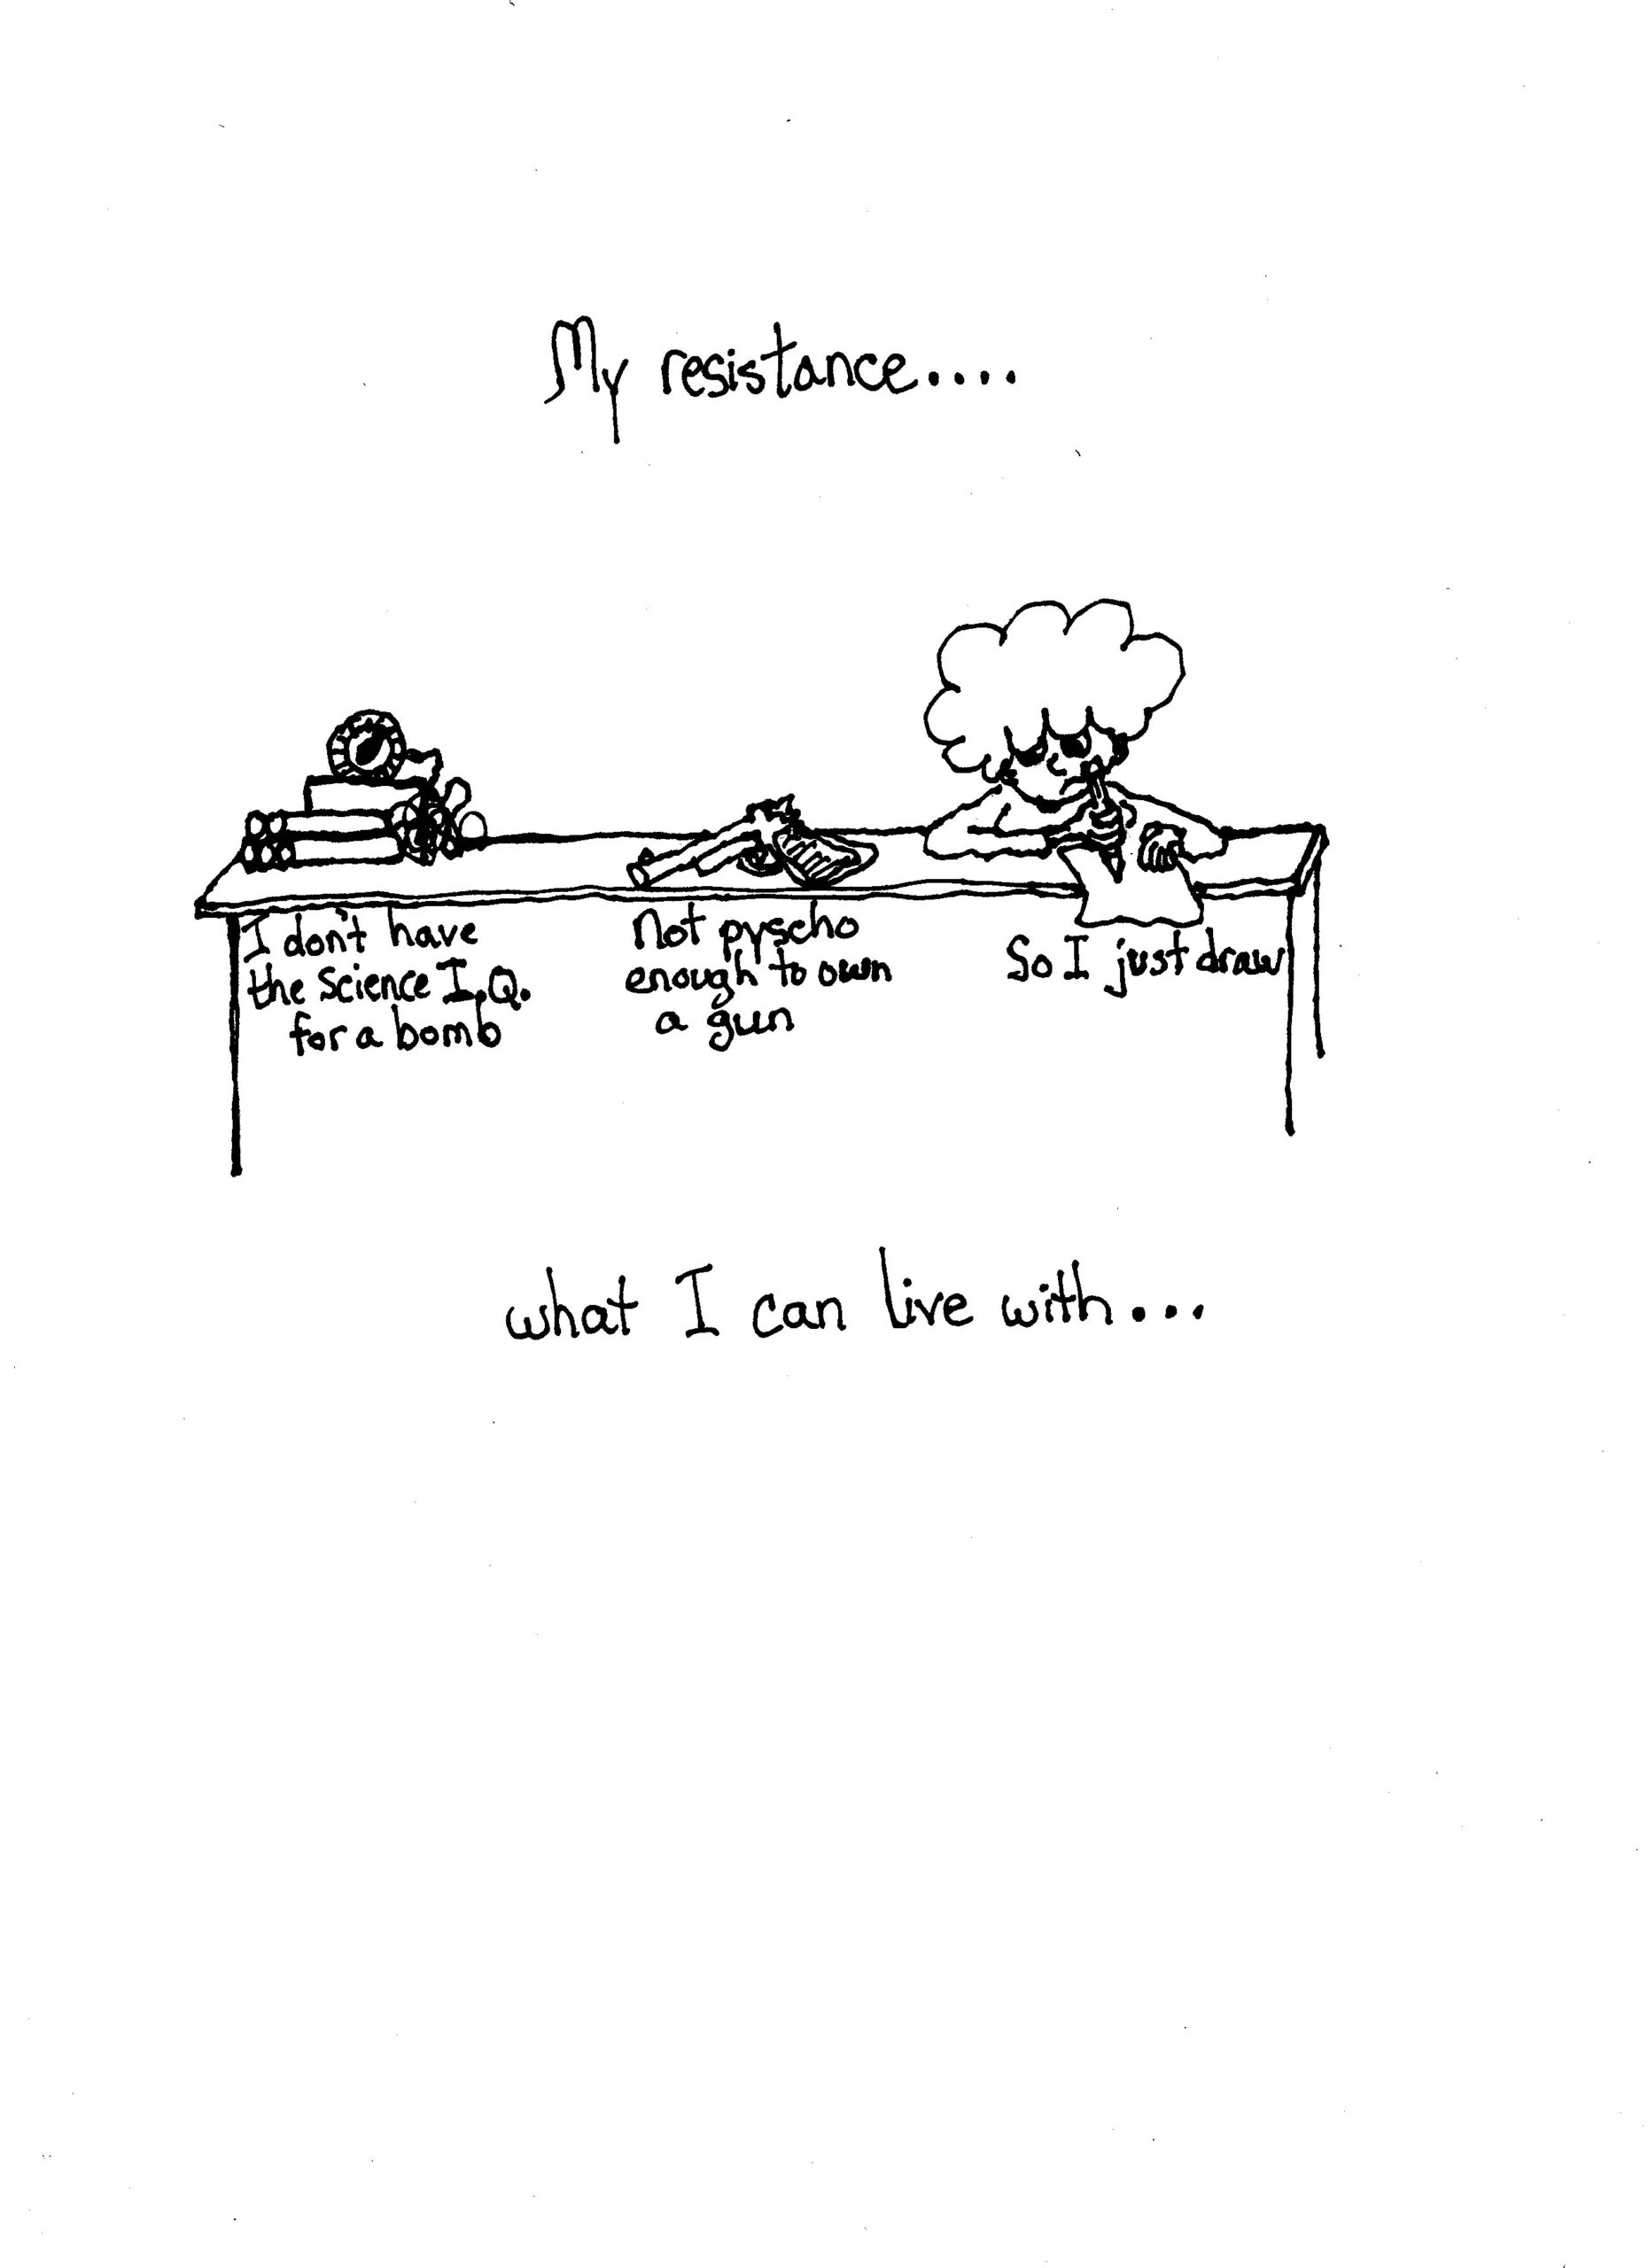 My resistance....
I don't have
the science I.Q.
for a bomb
Not pyscho
enough to own
a gun
So I just draw
what I can live with...